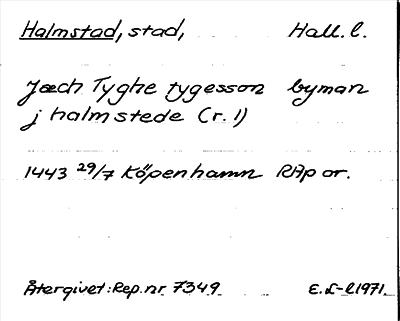 Halmstad, stad, Hall. l.
Jæch Tyghe tygesson byman
j halmstede (r. 1)
1443 29/7 Köpenhamn RAp or.
Återgivet: Rep. nr 7349 E. L-l 1971.